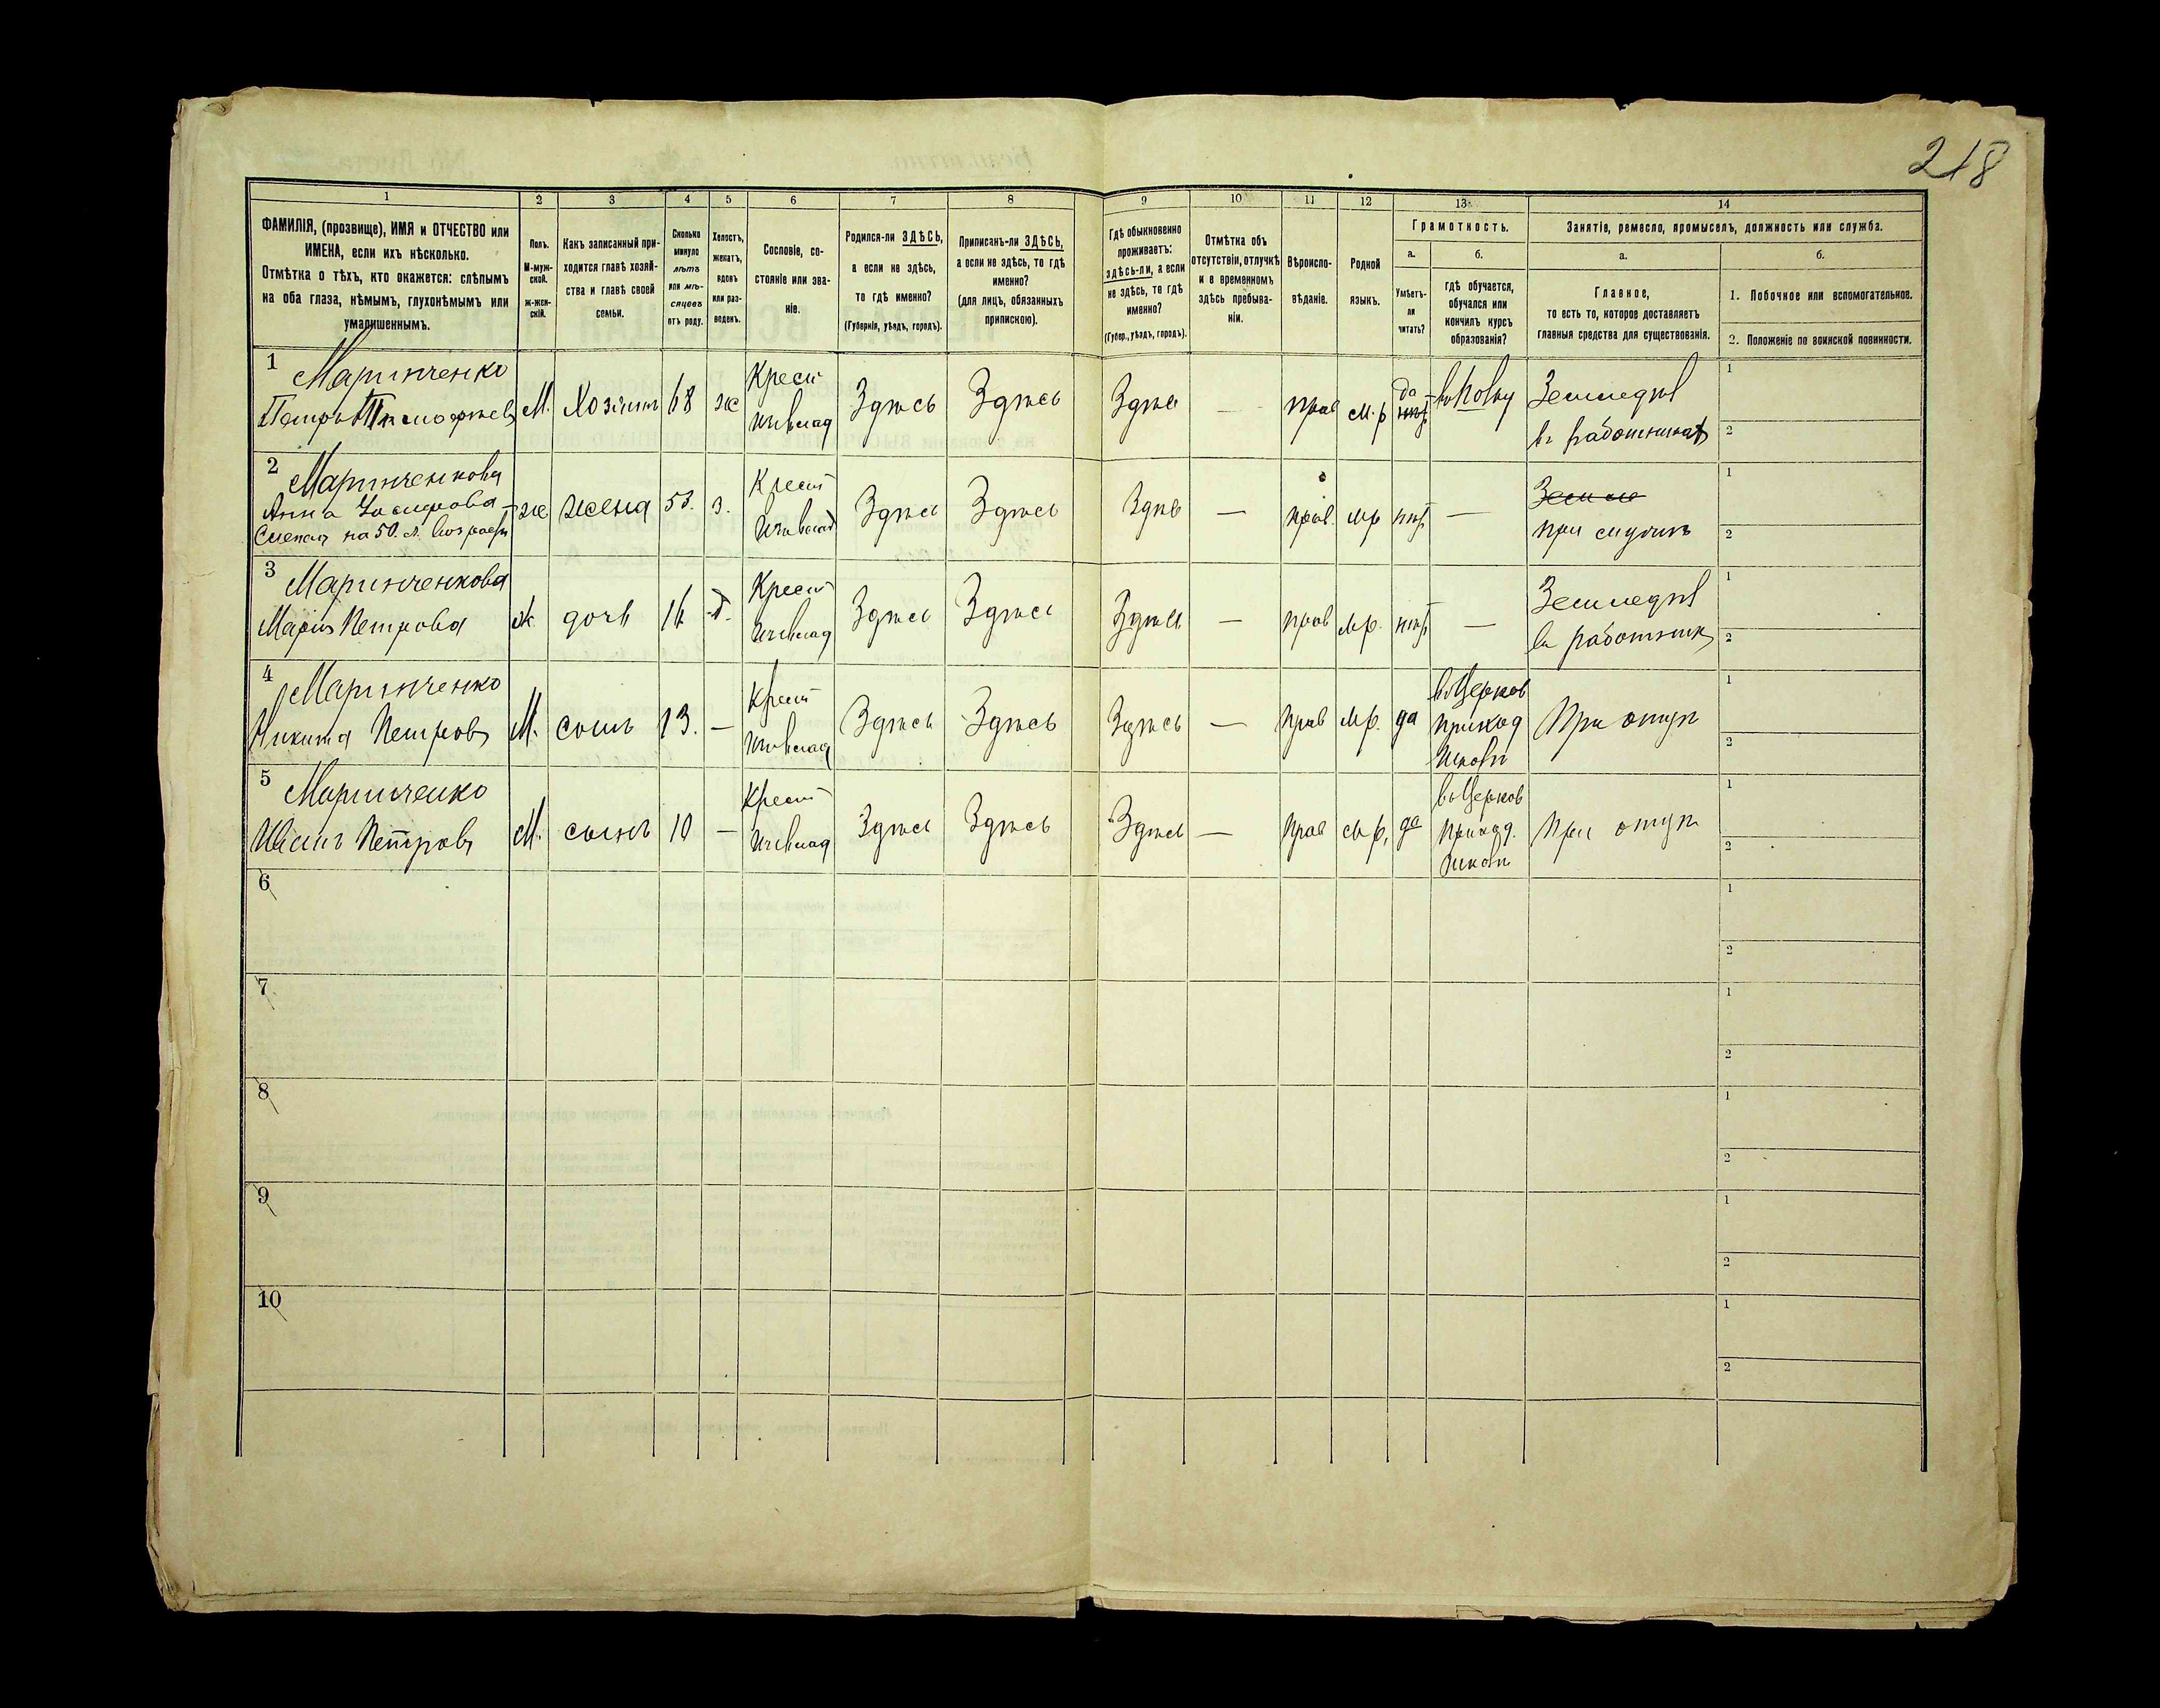 218
1 2 3 4 5 6 7 8 9 10 11 12 13 14
ФАМИЛІЯ, (прозвище), ИМЯ и ОТЧЕСТВО или
ИМЕНА, если ихъ нѣсколько.
Отмѣтка о тѣхъ, кто окажется: слѣпымъ
на оба глаза, нѣмымъ, глухонѣмымъ или
умалишеннымъ.
Полъ.
М-муж-
ской.
ж-жен-
скій.
Какъ записанный при-
ходится главѣ хозяй-
ства и главѣ своей
семьи.
Сколько
минуло
лѣтъ
или мѣ-
сяцевъ
отъ роду.
Холостъ,
женатъ,
вдовъ
или раз-
веденъ.
Сословіе, со-
стояніе или зва-
ніе.
Родился-ли ЗДѢСЬ,
а если не здѣсь,
то гдѣ именно?
(Губернія, уѣздъ, городъ).
Приписанъ-ли ЗДѢСЬ,
а если не здѣсь, то гдѣ
именно?
(для лицъ, обязанныхъ
припискою).
Гдѣ обыкновенно
проживаетъ:
здѣсь-ли, а если
не здѣсь, то гдѣ
именно?
(Губер., уѣздъ, городъ).
Отмѣтка объ
отсутствіи, отлучкѣ
и о временномъ
здѣсь пребыва-
ніи.
Вѣроиспо-
вѣданіе.
Родной
языкъ.
Грамотность.
а.
Умѣетъ-
ли
читать?
б.
гдѣ обучается,
обучался или
кончилъ курсъ
образованія?
Занятіе, ремесло, промыселъ, должность или служба.
а.
Главное,
то есть то, которое доставляетъ
главныя средства для существованія.
б.
1. Побочное или вспомогательное.
2. Положеніе по воинской повинности.
1 Маринченко
Петръ М. Хозяинъ 68 ж Крест Здѣсь Здѣсь Здѣсь — прав м.р да Земледѣл
въ работникахъ
1
2
2 Маринченкова
Анна
Слепая на 50. л. возраст ж жена 53. з. Крест Здѣсь Здѣсь Здѣс — прав. мр нѣт —
при мужѣ
1
2
3 Маринченкова
Марія Петрова ж дочь 16 д. Крест Здѣсь Здѣсь Здѣсь — прав мр. нѣт — Земледѣл
въ работник
1
2
4 Маринченко
Никита Петровъ М. сынъ 13. — Крест Здѣсь Здѣсь Здѣсь — прав мр. да въ Церков
приход
школѣ
При отцѣ
1
2
5 Маринченко
Петровъ М. сынъ 10 — Крест Здѣсь Здѣсь Здѣсь — прав мр. да въ Церков
приход.
школѣ
при отцѣ
1
2
6
1
2
7
1
2
8
1
2
9
1
2
10
1
2